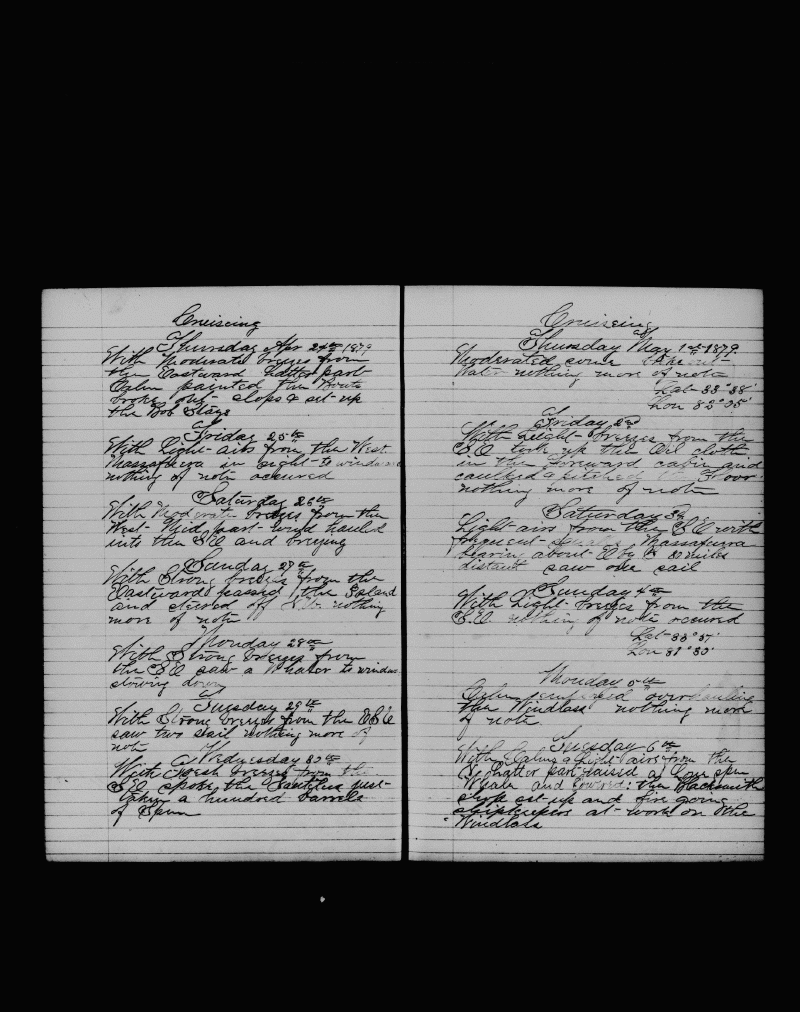 Cruiseing
Thursday Apr 24th 1879
With Moderate breezes from
the Eastward latter part
Calm painted the Boats
broke out slops & set up
the Bob Stays
Friday 25th
With Light airs from the West
Massafuera in sight to windward
nothing of note occured
Saturday 26th
With Moderate breezes from the
West Mid part wind hauled
into the SE and breezing
Sunday 27th
With Strong breezes from the
Eastward passed the Island
and steered off nothing
more of note
Monday 28th
With Strong breezes from
the SE saw a Whaler to windward
steering down
Tuesday 29th
With Strong breezes from the ESE
saw two sail nothing more of
note
Wednesday 30th
With Fresh breezes from the
SE spoke the just
taken a hundred barrels
of Sperm
Cruiseing
Thursday May 1st 1879
Moderated some
Water nothing more of note
Lat 33° 38'
Lon 82° 05'
Friday 2nd
With Light breezes from the
SE took up the Oil cloth
in the Forward cabin and
caulked & pitched Floor
nothing more of note
Saturday 3rd
Light airs from the SE with
frequent Massafuera
bearing about E by S miles
distant saw one sail
Sunday 4th
With Light breezes from the
SE nothing of note occured
Lat 33° 37'
Lon 81° 30'
Monday 5th
Calm overhauling
the Windlass nothing more
of note
Tuesday 6th
With Calms & Light airs from the
S latter part raised a Sperm
Whale and lowered: the Blacksmith
shop set up and fire going
shipkeepers at work on the
Windlass